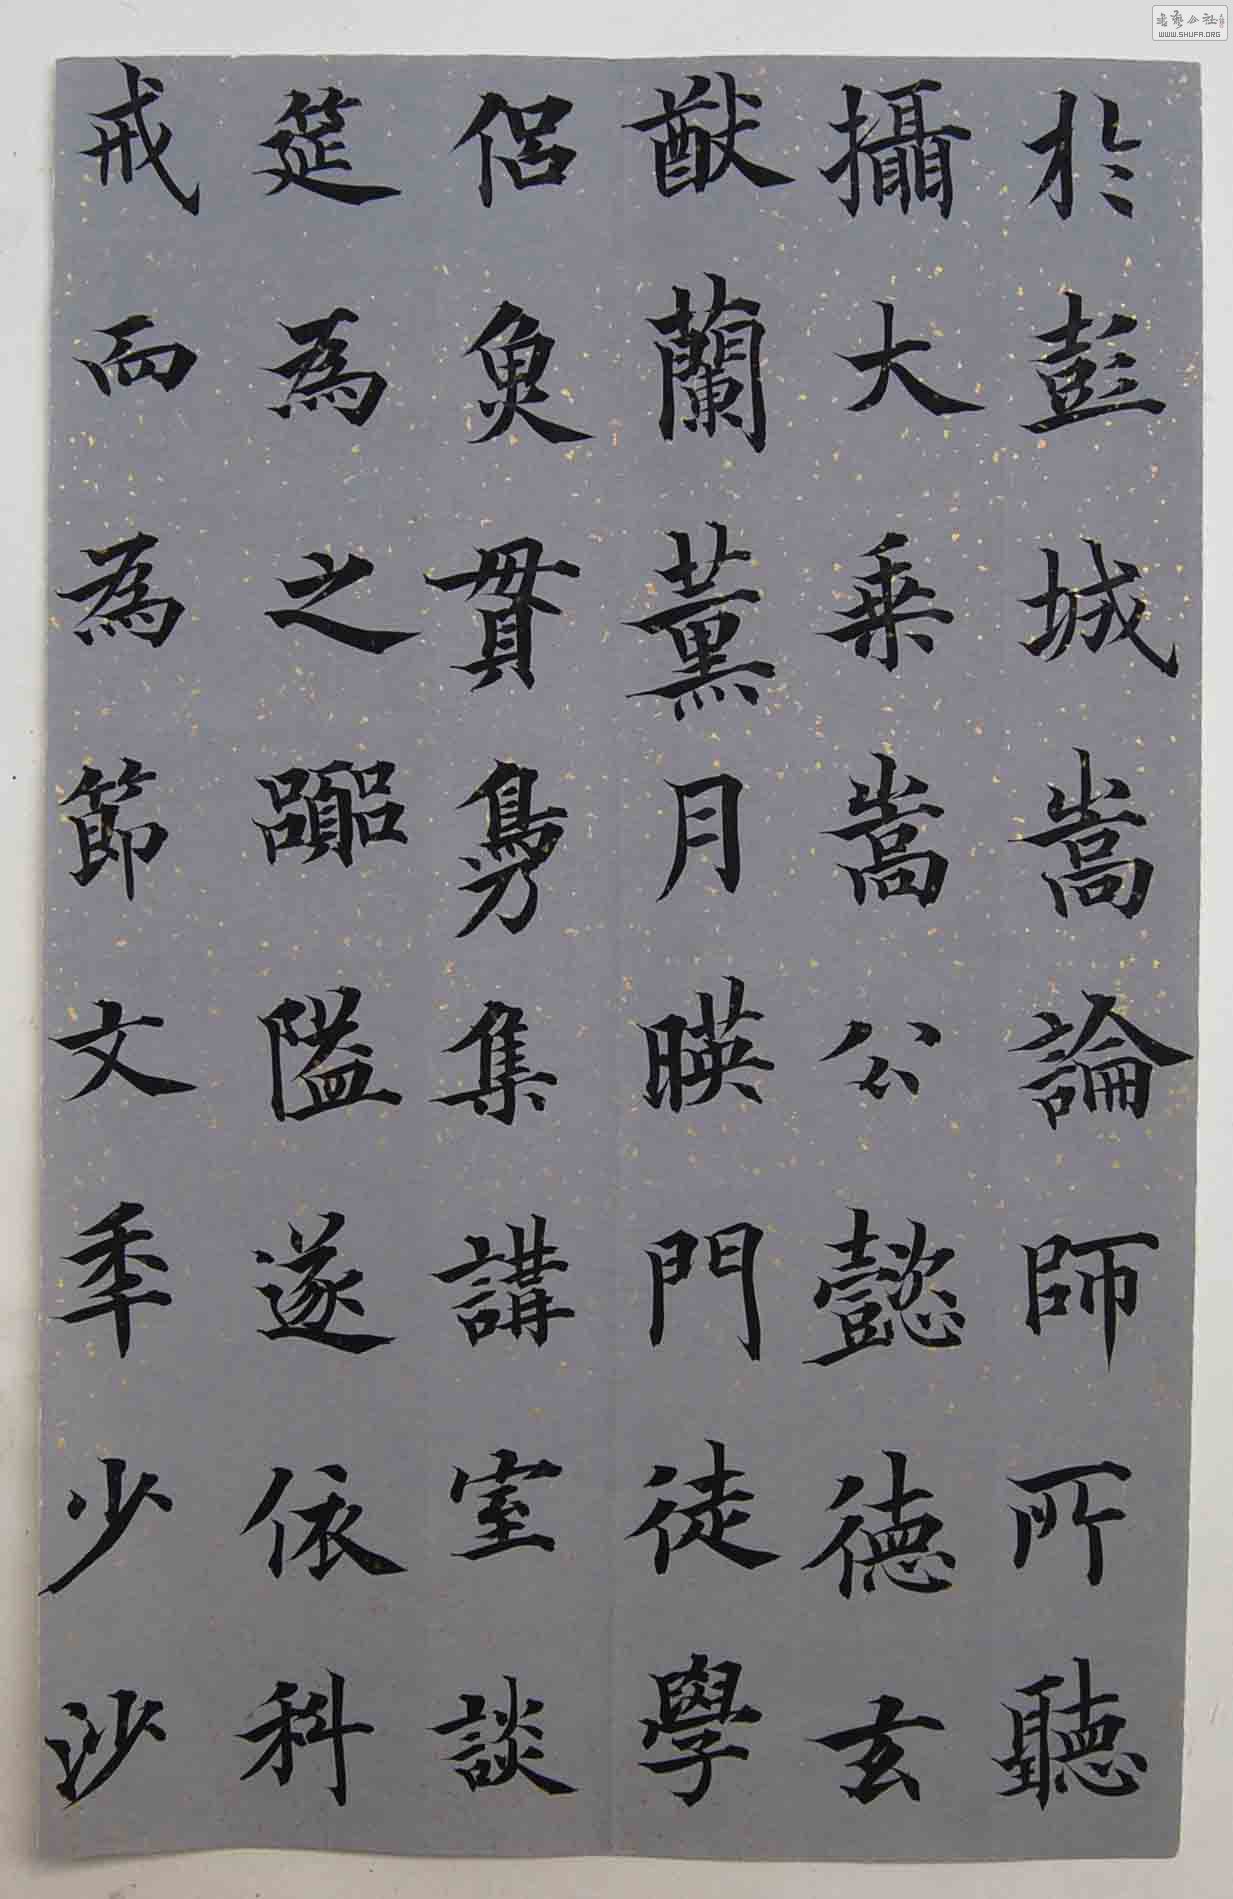 於彭城嵩論師所聽
攝大乗嵩公懿德玄
猷蘭薰月暎門徒學
侶魚貫鳧集講室談
筵為之嚻隘遂依科
戒而為節文年少沙
書藝公社
WWW.SHUFA.ORG